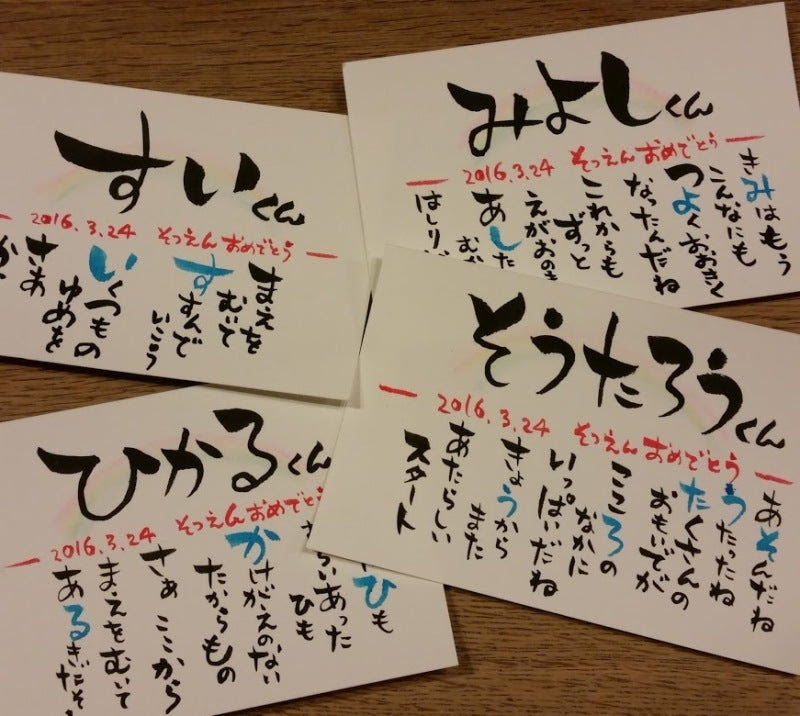 すいくん
2016.3.24 そつえんおめでとう
まえを
むいて
すすんで
いこう
いくつもの
ゆめを
さあ
か
みよしくん
2016.3.24 そつえんおめでとう
きみはもう
こんなにも
つよくおおきく
なったんだね
これからも
ずっと
えがおの
あした
むか
はしり
そうたろうくん
2016.3.24 そつえんおめでとう
あそんだね
うたったね
たくさんの
おもいでが
こころの
なかに
いっぱいだね
きょうから
また
あたらしい
スタート
ひかるくん
2016.3.24 そつえんおめでとう
ひも
らいあった
ひも
かけがえのない
たからもの
さぁ ここから
まえをむいて
あるきだそ